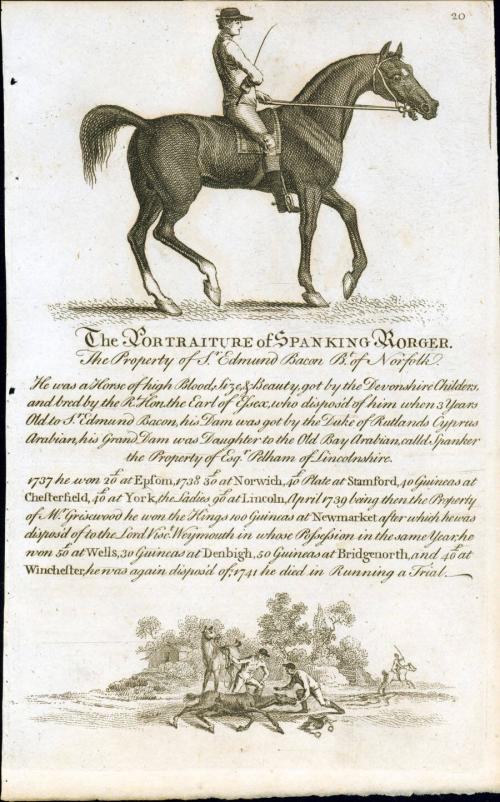 20
The PORTRAITURE of SPANKING RORGER.
The Property of Sr. Edmund Bacon Bt. of Norfolk.
He was a Horse of high Blood, Size, & Beauty, got by the Devonshire Childers,
and bred by the Rt. Hon. the Earl of Eſsex, who dispos'd of him when 3 Years
Old to Sr. Edmund Bacon, his Dam was got by the Duke of Rutlands Cyprus
Arabian, his Grand Dam was Daughter to the Old Bay Arabian, calld Spanker
the Property of Esqr. Pelham of Lincolnshire.
1737 he won 20£ at Epſom, 1738 30£ at Norwich, 40£ Plate at Stamford, 40 Guineas at
Cheſterfield, 40£ at York, the Ladies 90£ at Lincoln, April 1739 being then the Property
of Mr. Griſewood he won the Kings 100 Guineas at Newmarket after which he was
dispos'd of to the Lord Visc. Weymouth in whose Poſseſsion in the same Year, he
won 50 at Wells, 30 Guineas at Denbigh, 50 Guineas at Bridgenorth, and 40£ at
Wincheſter, he was again dispos'd of; 1741 he died in Running a Trial.